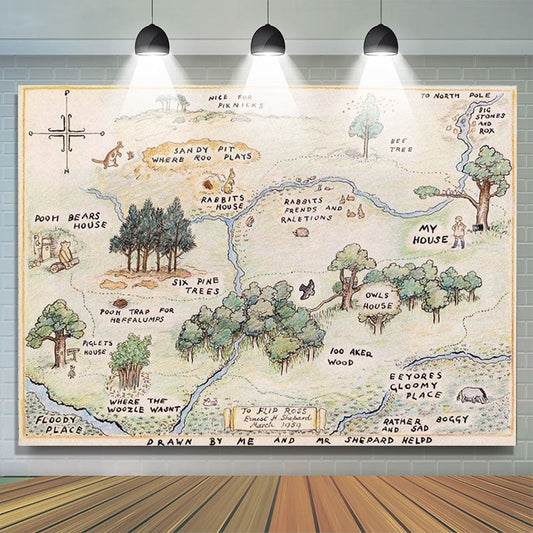 NICE FOR
PIKNICKS
TO NORTH POLE
BIG
STONES
AND
ROX
P
BEE
TREE
SANDY PIT
WHERE ROO PLAYS
RABBITS
HOUSE
RABBITS
FRENDS AND
RALETIONS
POOH BEARS
HOUSE
MY
HOUSE
SIX PINE
TREES
OWLS
HOUSE
POOH TRAP FOR
HEFFALUMPS
PIGLETS
HOUSE
100 AKER
WOOD
EEYORES
GLOOMY
PLACE
WHERE THE
WOOZLE WASNT
FLOODY
PLACE
TO FLIP ROSS
Ernest H. Shepard
March 1959
RATHER BOGGY
AND SAD
DRAWN BY ME AND MR SHEPARD HELPD